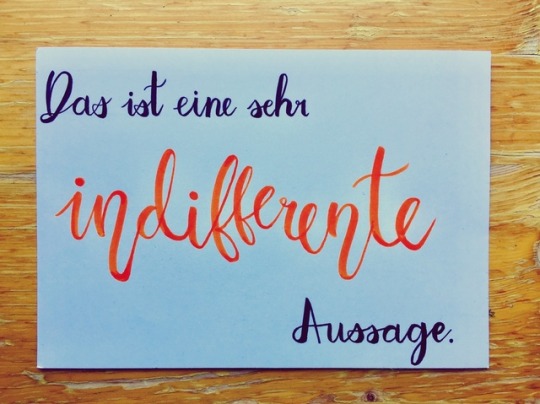 Das ist eine sehr
indifferente
Aussage.